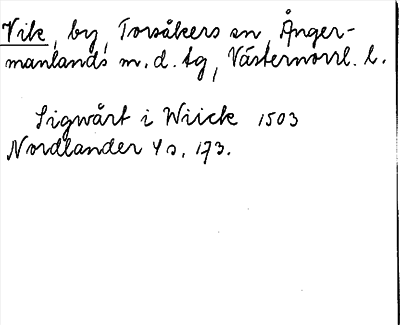 Vik, by, Torsåkers sn, Ånger-
manlands m. d. tg, Västernorrl. l.
Sigwårt i Wiick 1503
Nordlander 4 s, 173.